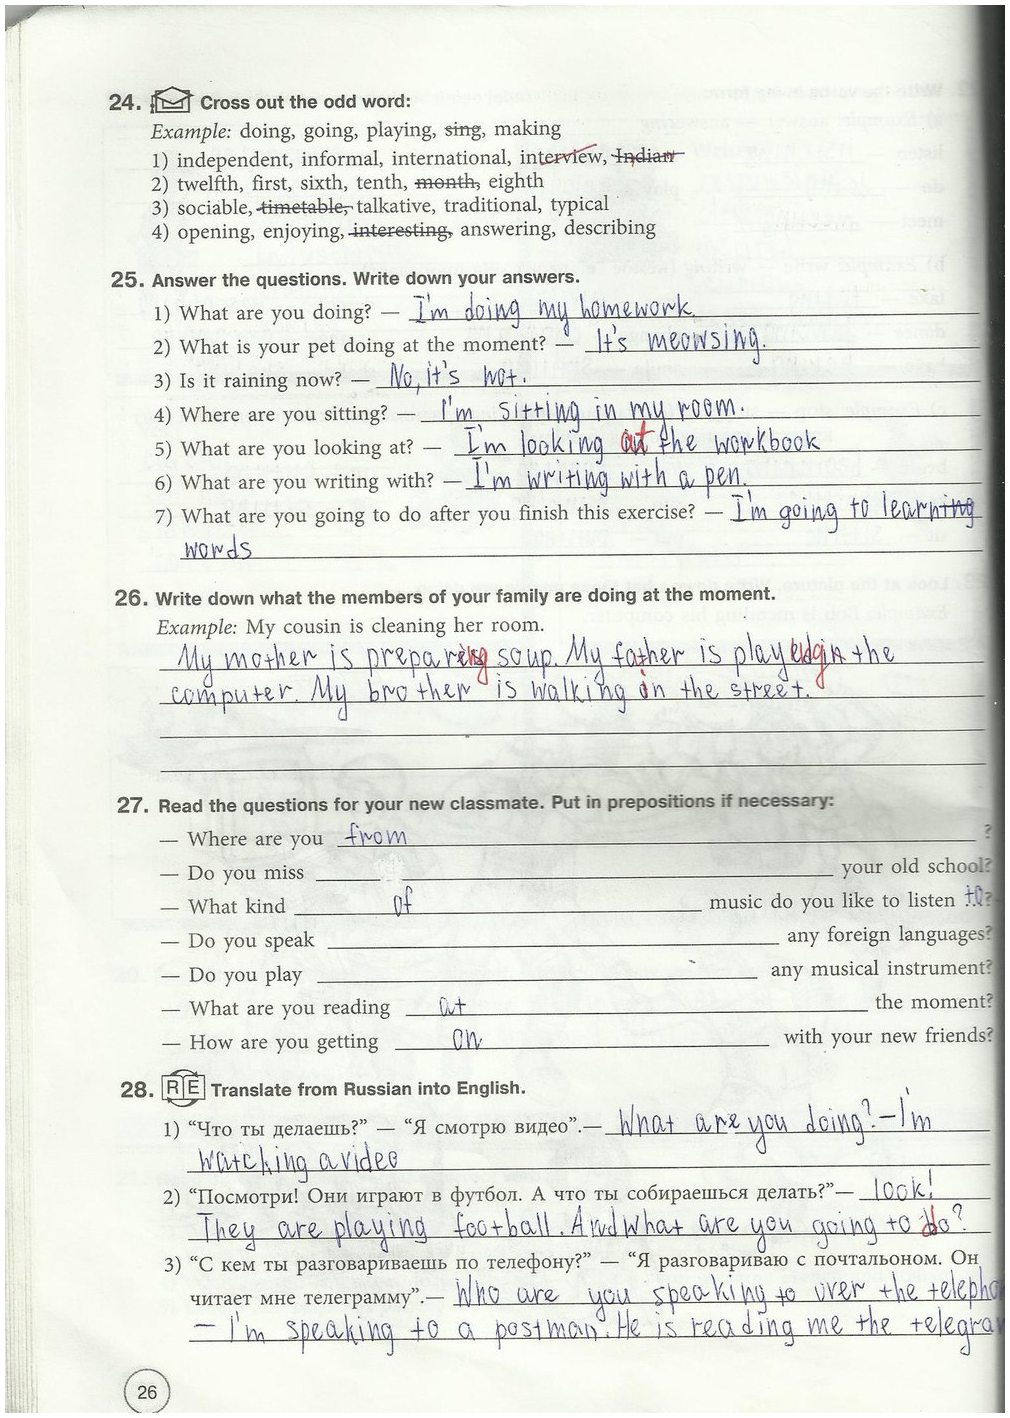 24. Cross out the odd word:
Example: doing, going, playing, sing, making
1) independent, informal, international, interview, Indian
2) twelfth, first, sixth, tenth, month, eighth
3) sociable, timetable, talkative, traditional, typical
4) opening, enjoying, interesting, answering, describing
25. Answer the questions. Write down your answers.
1) What are you doing? — I'm doing my homework.
2) What is your pet doing at the moment? — It's meowsing.
3) Is it raining now? — No, it's not.
4) Where are you sitting? — I'm sitting in my room.
5) What are you looking at? — I'm looking at the workbook
6) What are you writing with? — I'm writing with a pen.
7) What are you going to do after you finish this exercise? — I'm going to learning
words
26. Write down what the members of your family are doing at the moment.
Example: My cousin is cleaning her room.
My mother is preparing soup. My father is playing in the
computer. My brother is walking in the street.
27. Read the questions for your new classmate. Put in prepositions if necessary:
— Where are you from ?
— Do you miss your old school?
— What kind of music do you like to listen to?
— Do you speak any foreign languages?
— Do you play any musical instrument?
— What are you reading at the moment?
— How are you getting on with your new friends?
28. RE Translate from Russian into English.
1) “Что ты делаешь?” — “Я смотрю видео”.— What are you doing? – I'm
watching a video
2) “Посмотри! Они играют в футбол. А что ты собираешься делать?”— look!
They are playing football. And what are you going to do?
3) “С кем ты разговариваешь по телефону?” — “Я разговариваю с почтальоном. Он
читает мне телеграмму”.— Who are you speaking to over the telepho
– I'm speaking to a postman. He is reading me the telegra
26